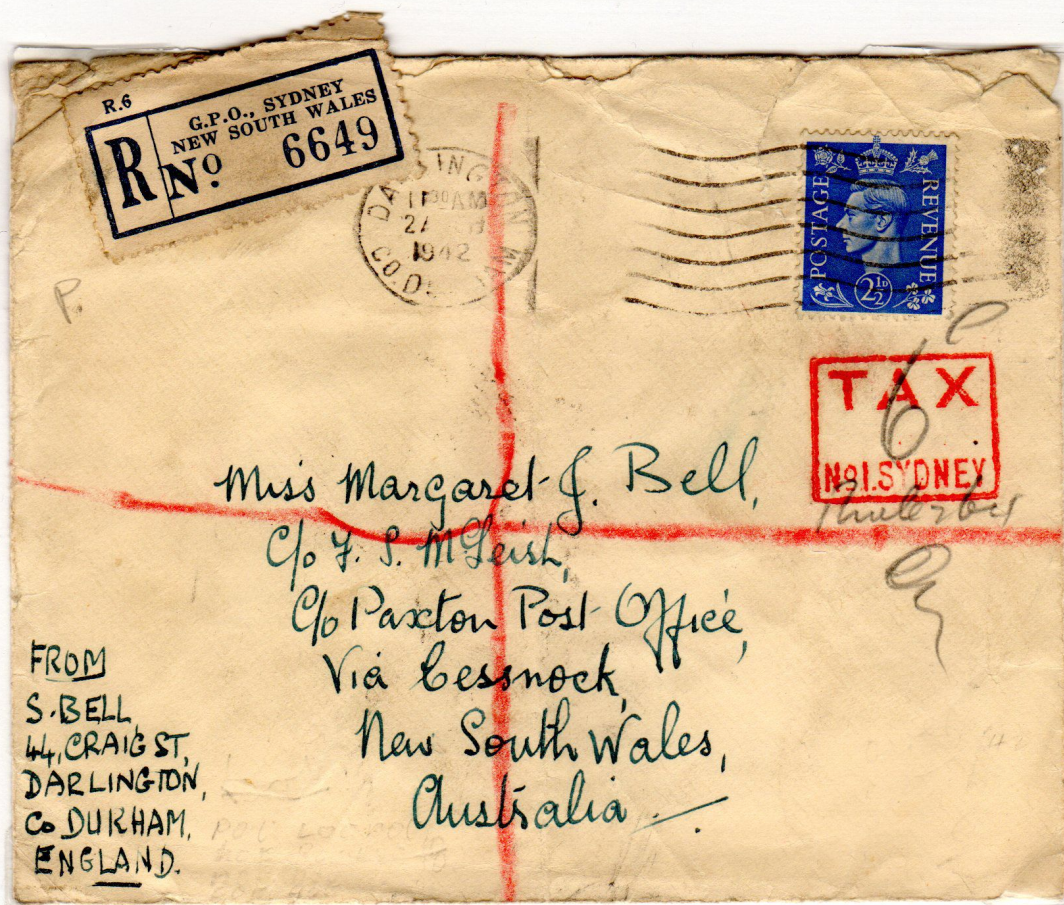 R.6
G.P.O., SYDNEY
NEW SOUTH WALES
R No 6649
DARLINGTON
11 30 AM
1942
CO.D
POSTAGE REVENUE
2½D
P.
TAX
6
No 1. SYDNEY
Miss Margaret J. Bell,
C/o F. S. McLeish,
C/o Paxton Post Office,
Via Cessnock,
New South Wales,
Australia
FROM
S. BELL,
44, CRAIG ST,
DARLINGTON,
Co DURHAM,
ENGLAND.